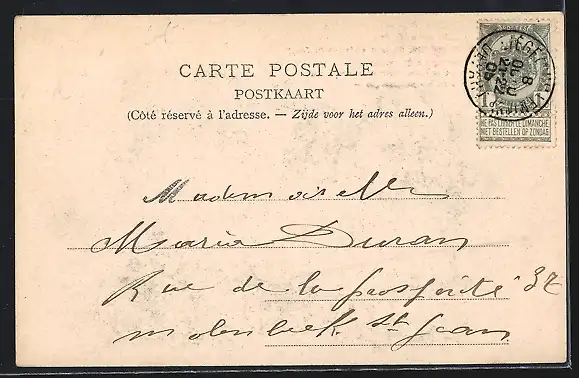 CARTE POSTALE
POSTKAART
(Côté réservé à l'adresse. — Zijde voor het adres alleen.)
LIÉGE
NE PAS LIVRER LE DIMANCHE
NIET BESTELLEN OP ZONDAG
Mademoiselle
Maria Duran
Rue de la prospérité 37
molenbeek St Jean